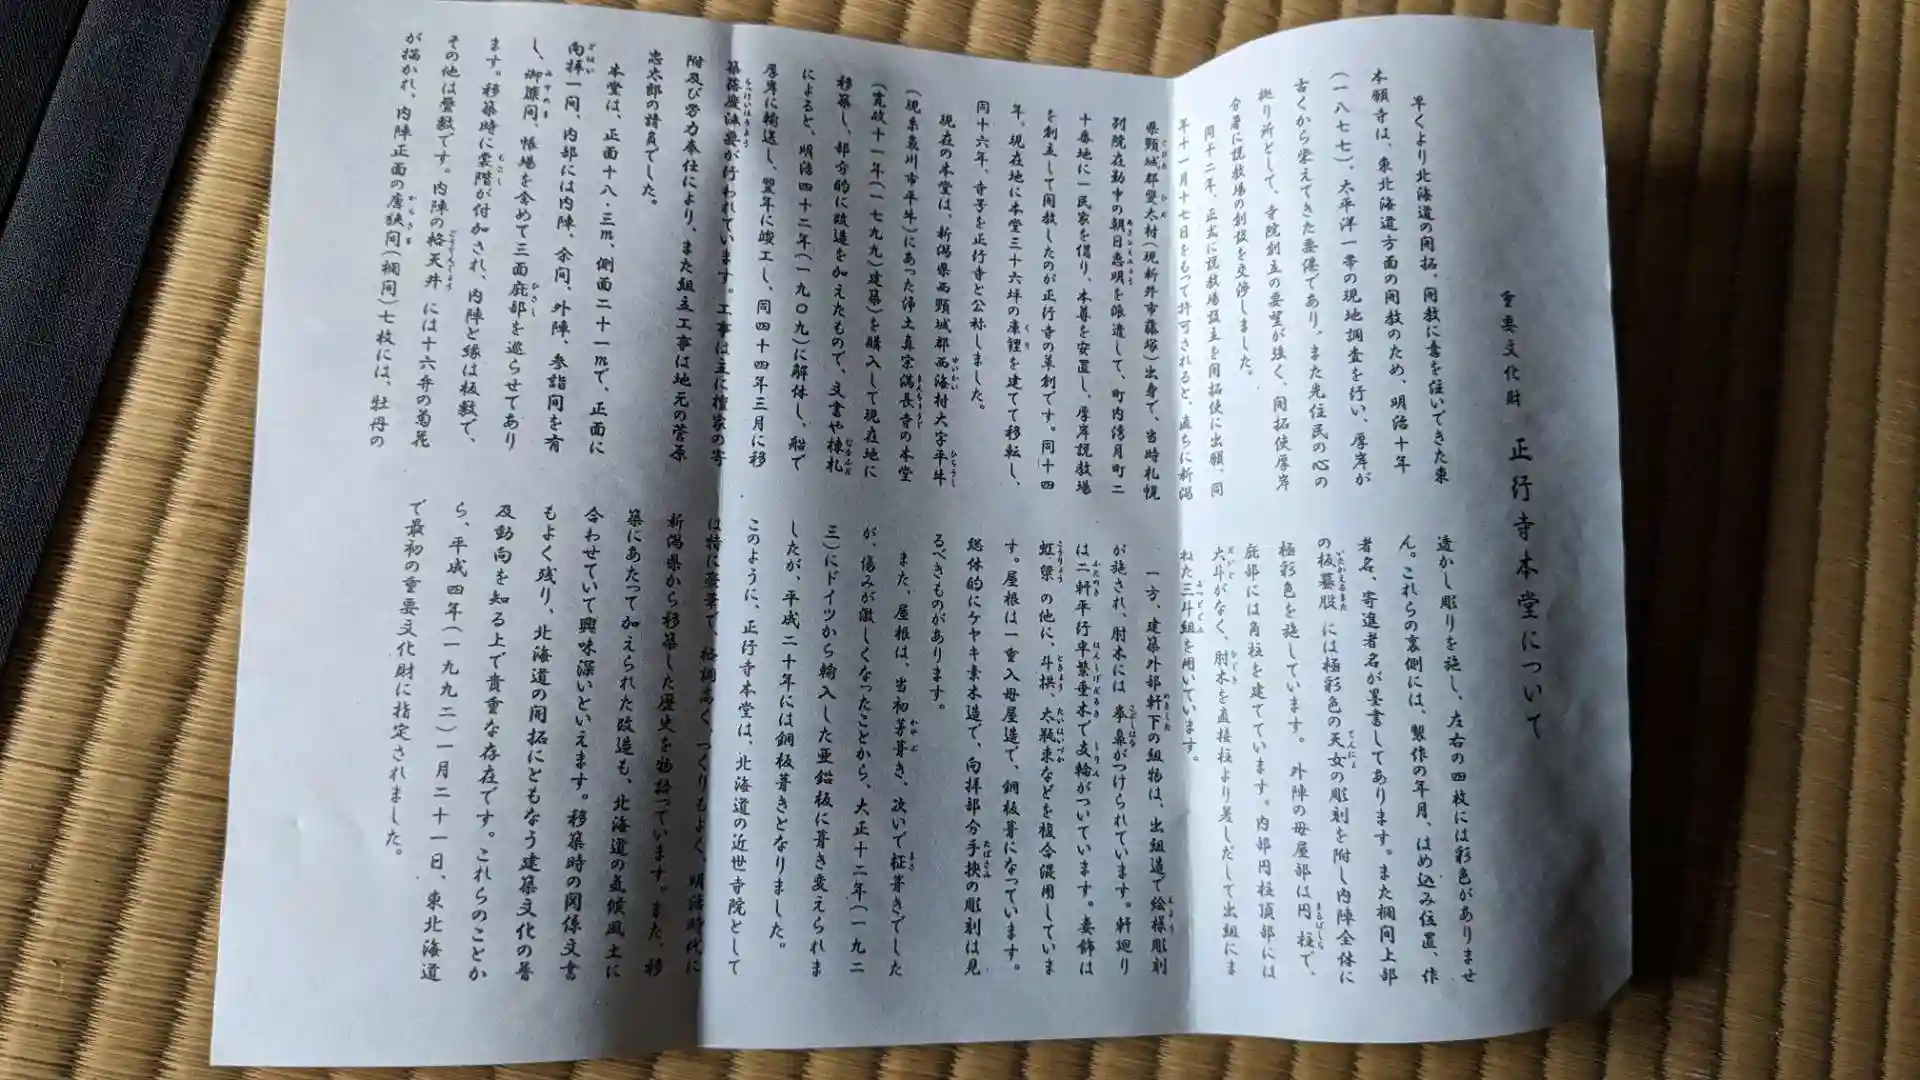 重要文化財 正行寺本堂について
早くより北海道の開拓、開教に意を注いできた東
本願寺は、東北海道方面の開教のため、明治十年
(一八七七)、太平洋一帯の現地調査を行い、厚岸が
古くから栄えてきた要港であり、また先住民の心の
拠り所として、寺院創立の要望が強く、開拓使厚岸
分署に説教場の創設を交渉しました。
同十二年、正式に説教場設立を開拓使に出願、同
年十一月十七日をもって許可されると、直ちに新潟
県頸城郡斐太村(現新井市藤塚)出身で、当時札幌
別院在勤中の朝日恵明を派遣して、町内湾月町二
十番地に一民家を借り、本尊を安置し、厚岸説教場
を創立して開教したのが正行寺の草創です。同十四
年。現在地に本堂三十六坪の庫裡を建てて移転し、
同十六年、寺号を正行寺と公称しました。
現在の本堂は、新潟県西頸城郡西海村大字平牛
(現糸魚川市平牛)にあった浄土真宗満長寺の本堂
(寛政十一年(一七九九)建築)を購入して現在地に
移築し、部分的に改造を加えたもので、文書や棟札
によると、明治四十二年(一九〇九)に解体し、船で
厚岸に輸送し、翌年に竣工し、同四十四年三月に移
築落慶法要が行われています。工事は主に檀家の寄
附及び労力奉仕により、また組立工事は地元の菅原
忠太郎の請負でした。
本堂は、正面十八・三m、側面二十一mで、正面に
向拝一間、内部には内陣、余間、外陣、参詣間を有
し、御簾間、帳場を含めて三面庇部を巡らせてあり
ます。移築時に裳階が付加され、内陣と縁は板敷で、
その他は畳敷です。内陣の格天井には十六弁の菊花
が描かれ、内陣正面の唐狭間(欄間)七枚には、牡丹の
透かし彫りを施し、左右の四枚には彩色がありませ
ん。これらの裏側には、製作の年月、はめ込み位置、作
者名、寄進者名が墨書してあります。また欄間上部
の板蟇股には極彩色の天女の彫刻を附し内陣全体に
極彩色を施しています。外陣の母屋部は円柱で、
庇部には角柱を建てています。内部円柱頂部には
大斗がなく、肘木を直接柱より差しだして出組にま
ねた三斗組を用いています。
一方、建築外部軒下の組物は、出組造で絵様彫刻
が施され、肘木には拳鼻がつけられています。軒廻り
は二軒平行半繁垂木で支輪がついています。妻飾は
虹梁の他に、斗栱、大瓶束などを複合混用していま
す。屋根は一重入母屋造で、銅板葺になっています。
総体的にケヤキ素木造で、向拝部分手挟の彫刻は見
るべきものがあります。
また、屋根は、当初茅葺き、次いで柾葺きでした
が、傷みが激しくなったことから、大正十二年(一九二
三)にドイツから輸入した亜鉛板に葺き変えられま
したが、平成二十年には銅板葺きとなりました。
このように、正行寺本堂は、北海道の近世寺院として
は特に豪華で、格調高く、つくりもよく、明治時代に
新潟県から移築した歴史を物語っています。また、移
築にあたって加えられた改造も、北海道の気候風土に
合わせていて興味深いといえます。移築時の関係文書
もよく残り、北海道の開拓にともなう建築文化の普
及動向を知る上で貴重な存在です。これらのことか
ら、平成四年(一九九二)一月二十一日、東北海道
で最初の重要文化財に指定されました。